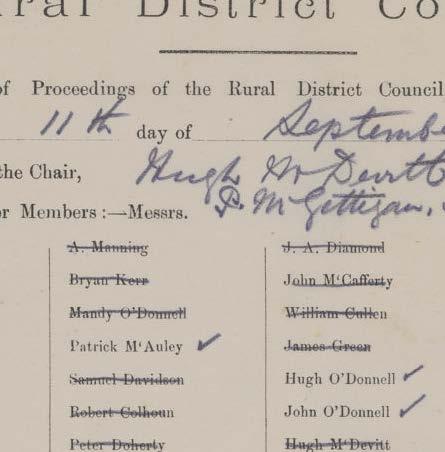 ral District Co
of Proceedings of the Rural District Council
11th day of Septembe
the Chair, Hugh McDevitt
r Members :—Messrs. P. McGettigan,
A. Manning J. A. Diamond
Bryan Kerr John M'Cafferty
Mandy O'Donnell William Cullen
Patrick M'Auley ✓ James Green
Samuel Davidson Hugh O'Donnell ✓
Robert Colhoun John O'Donnell ✓
Peter Doherty Hugh M'Devitt